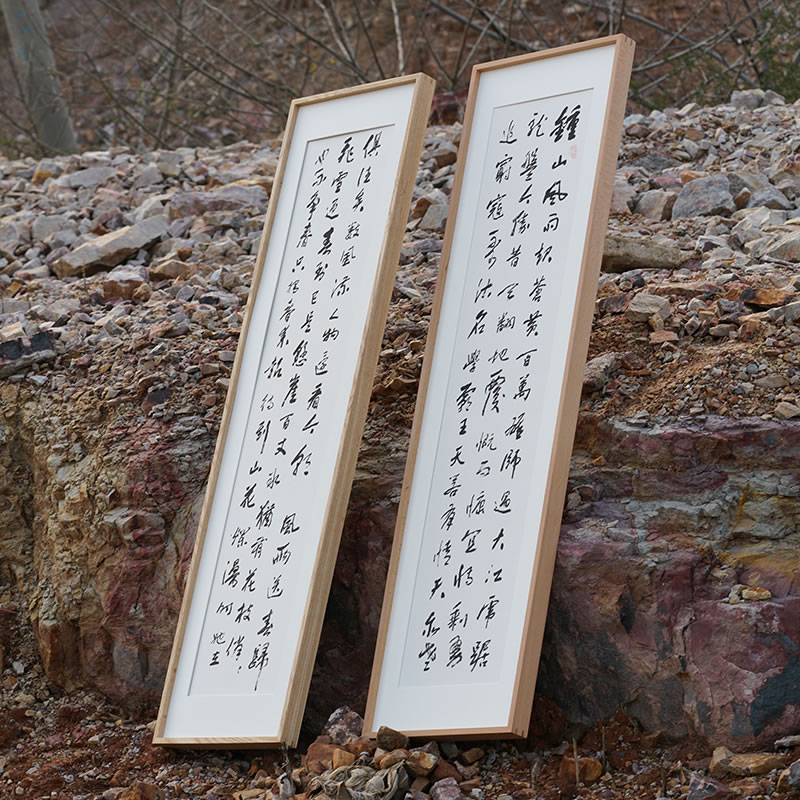 鍾山風雨起蒼黃百萬雄師過大江虎踞
龍盤今勝昔天翻地覆慨而慷宜將剩勇
追窮寇不可沽名學霸王天若有情天亦老
俱往矣數風流人物還看今朝 風雨送春歸
飛雪迎春到已是懸崖百丈冰猶有花枝俏〻
也不爭春只把春來報待到山花爛漫時她在